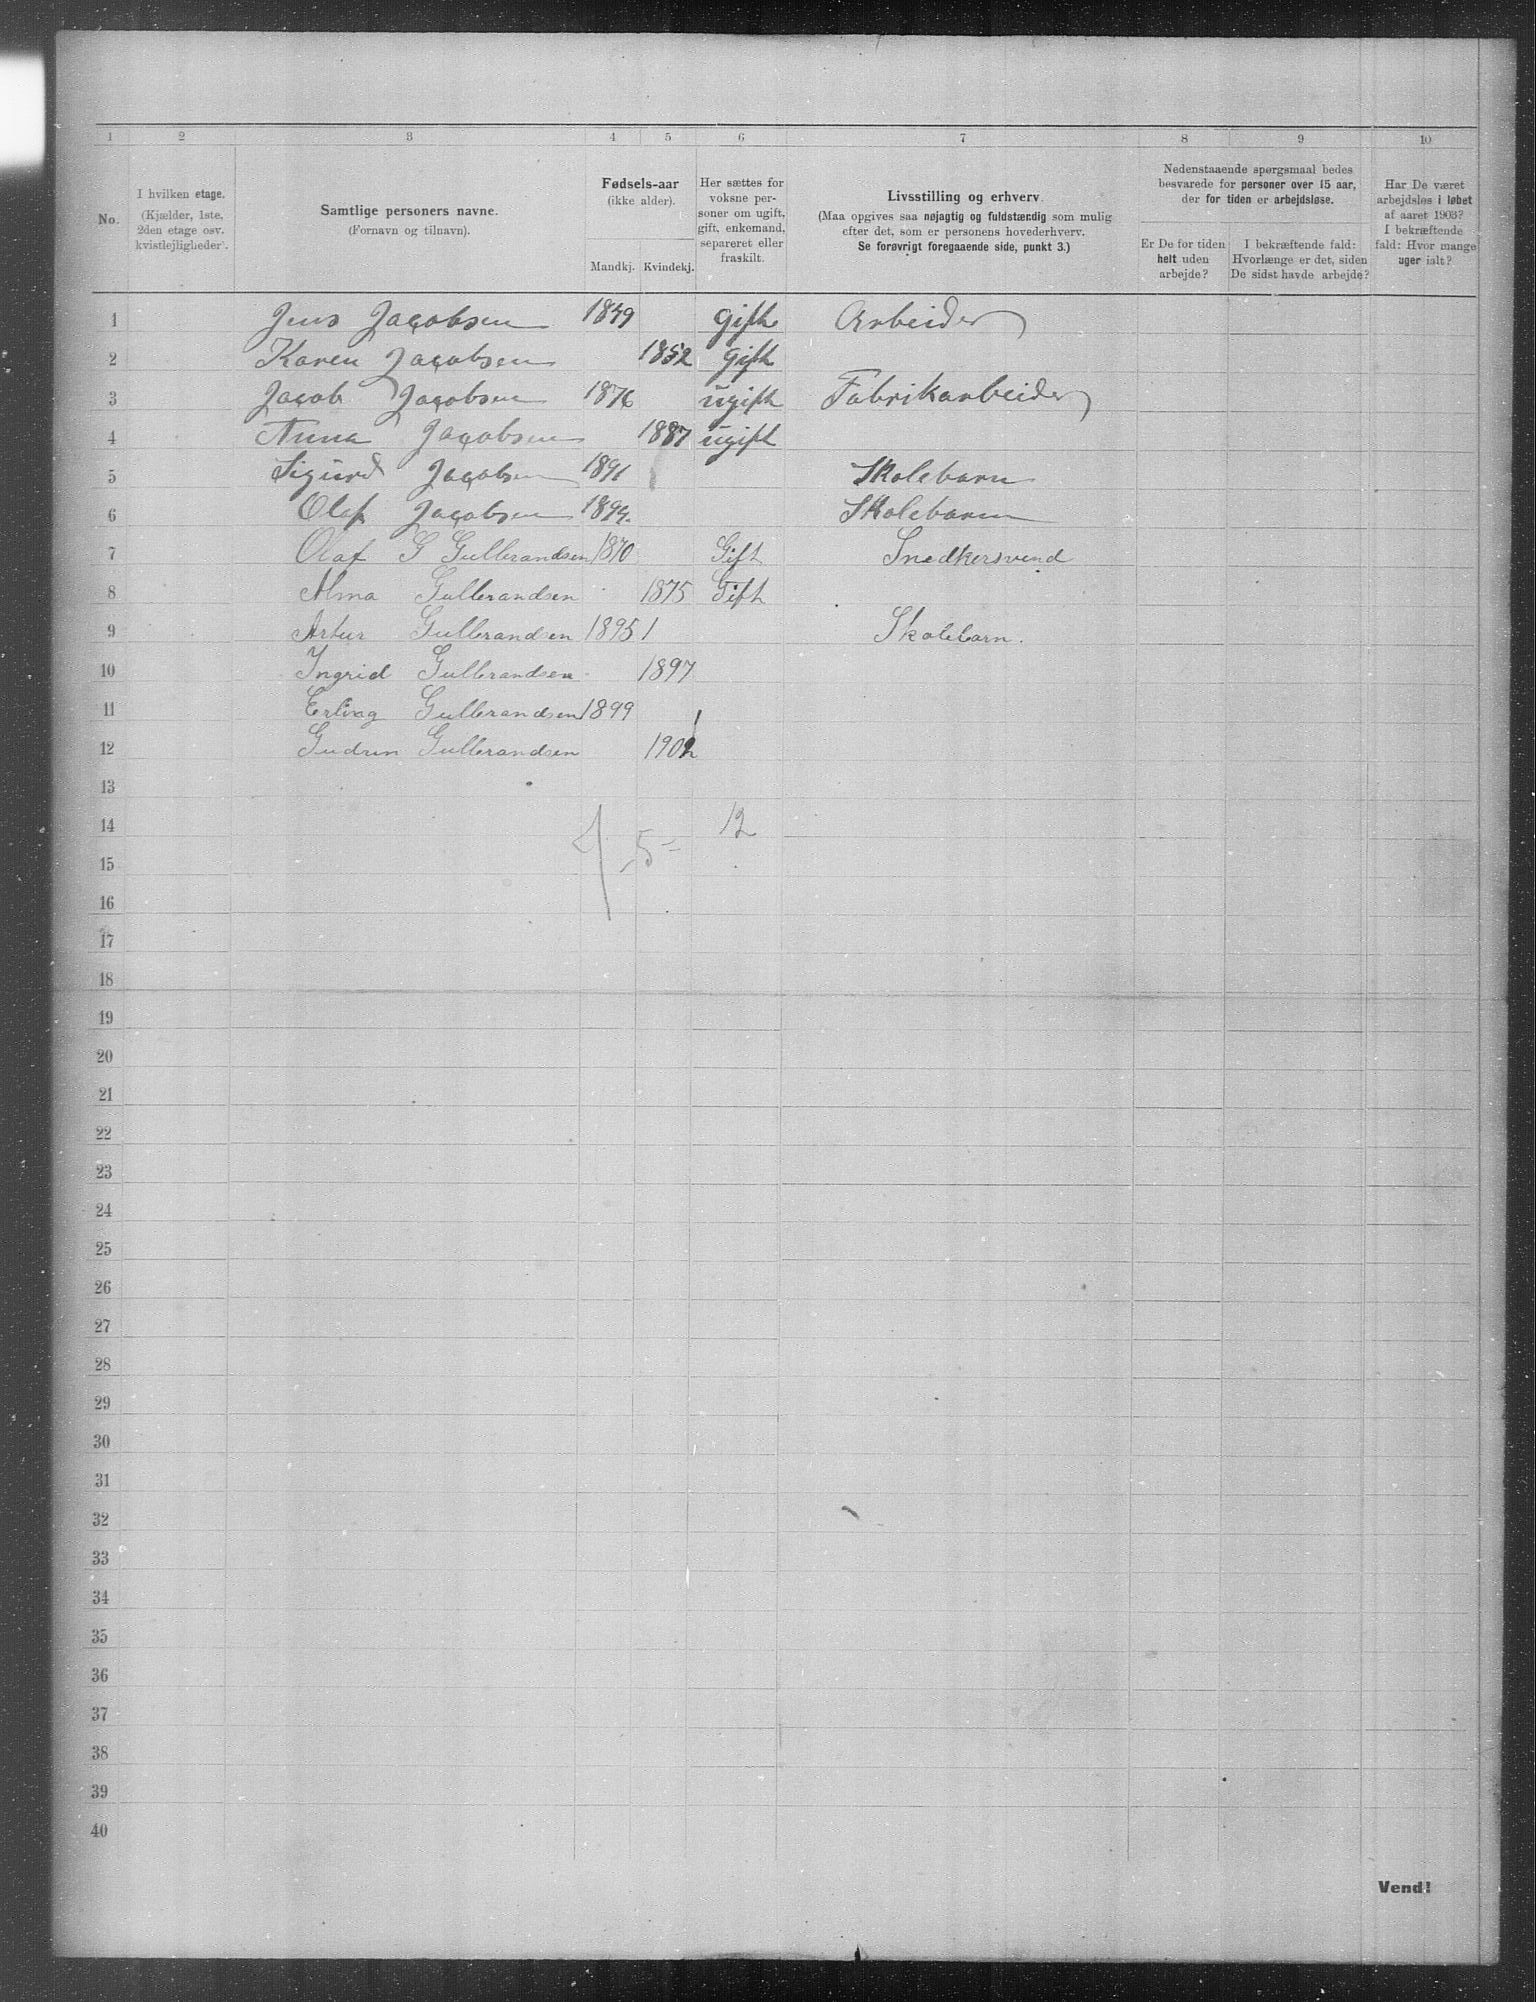 1 2 3 4 5 6 7 8 9 10
No.
I hvilken etage.
(Kjælder, 1ste,
2den etage osv.
kvistlejligheder).
Samtlige personers navne.
(Fornavn og tilnavn).
Fødsels-aar
(ikke alder).
Mandkj. Kvindekj.
Her sættes for
voksne per-
soner om ugift,
gift, enkemand,
separeret eller
fraskilt.
Livsstilling og erhverv.
(Maa opgives saa nøjagtig og fuldstændig som mulig
efter det, som er personens hovederhverv.
Se forøvrigt foregaaende side, punkt 3.)
Nedenstaaende spørgsmaal bedes
besvarede for personer over 15 aar,
der for tiden er arbejdsløse.
Er De for tiden
helt uden
arbejde?
I bekræftende fald:
Hvorlænge er det, siden
De sidst havde arbejde?
Har De været
arbejdsløs i løbet
af aaret 1903?
I bekræftende
fald: Hvor mange
uger ialt?
1 Jens Jacobsen 1849 gift Arbeider
2 Karen Jacobsen 1852 gift
3 Jacob Jacobsen 1876 ugift Fabrikarbeider
4 Anna Jacobsen 1887 ugift
5 Sigurd Jacobsen 1891 Skolebarn
6 Olaf Jacobsen 1894. Skolebarn
7 Olaf G Gulbrandsen 1870 Gift Snedkersvend
8 Alma Gulbrandsen 1875 Gift
9 Artur Gulbrandsen 1895 Skolebarn.
10 Ingrid Gulbrandsen 1897
11 Erling Gulbrandsen 1899
12 Gudrun Gulbrandsen 1902
13
14 12
15 5
16
17
18
19
20
21
22
23
24
25
26
27
28
29
30
31
32
33
34
35
36
37
38
39
40
Vend!